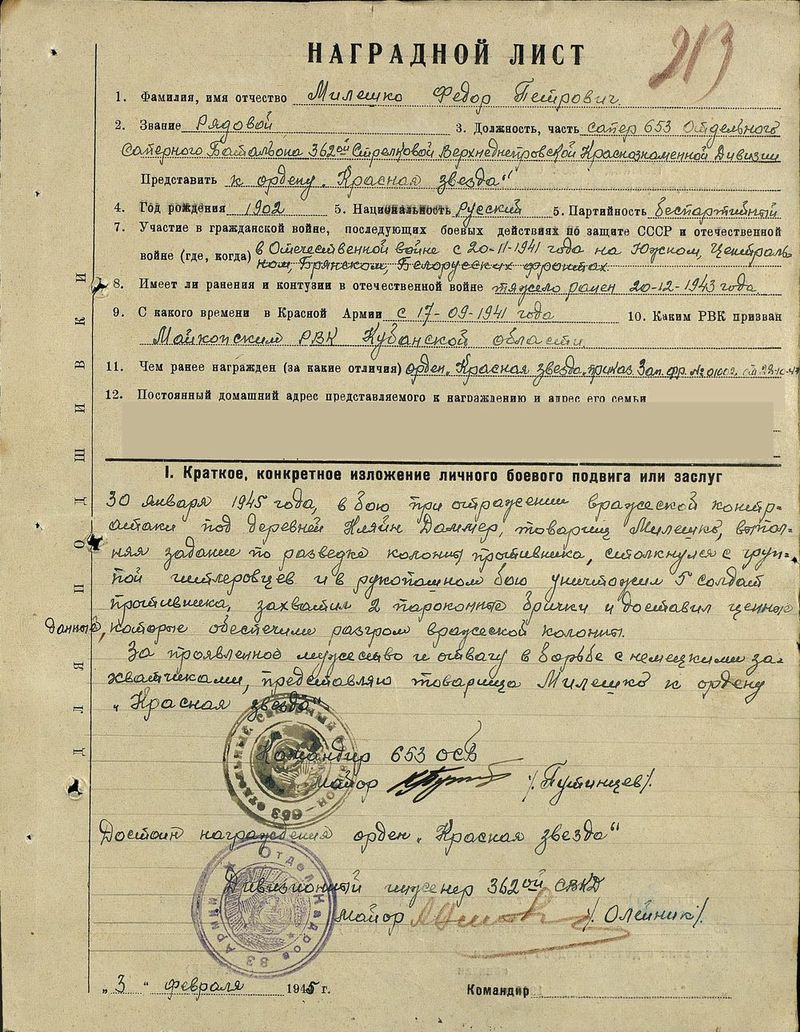 213
НАГРАДНОЙ ЛИСТ
1. Фамилия, имя отчество Милешко Федор Петрович
2. Звание Рядовой 3. Должность, часть сапер 653 Отдельного
Саперного Батальона 362ой Стрелковой Верхнеднепровской Краснознаменной Дивизии
Представить к ордену „Красная звезда“
4. Год рождения 1902 5. Национальность Русский 5. Партийность беспартийный
7. Участие в гражданской войне, последующих боевых действиях по защите СССР и отечественной
войне (где, когда) в Отечественной войне с 20-11-1941 года на Южном, Централь
ном, Брянском, Белорусских фронтах
8. Имеет ли ранения и контузии в отечественной войне тяжело ранен 20-12-1943 года
9. С какого времени в Красной Армии с 17-09-1941 года 10. Каким РВК призван
Майкопским РВК Кубанской области
11. Чем ранее награжден (за какие отличия) орден „Красная звезда“, приказ Зап. фр. №01002, от
12. Постоянный домашний адрес представляемого к награждению и адрес его семьи
I. Краткое, конкретное изложение личного боевого подвига или заслуг
30 января 1945 года, в бою при отражении вражеской контр-
атаки под деревней Кляйн Даммер, товарищ Милешко, выпол-
няя задание по разведке колонны противника, столкнулся с груп-
пой гитлеровцев и в рукопашном бою уничтожил 5 солдат
противника, захватил 2 пароконные брички и доставил ценные
данные, которые обеспечили разгром вражеской колонны.
За проявленное мужество и отвагу в борьбе с немецкими за-
хватчиками, представляю товарища Милешко к ордену
„Красная звезда“
Командир 653 ОСБ
Майор /Путинцев/.
653 ОТДЕЛЬНЫЙ САПЕРНЫЙ
Достоин награждения орден „Красная звезда“
Дивизионный инженер 362ой СВКД
Майор /Олейник/.
Отдел Кадров 33 Армии
„3“ февраля 1945 г.
Командир
ДЛЯ ПОДШИВКИ